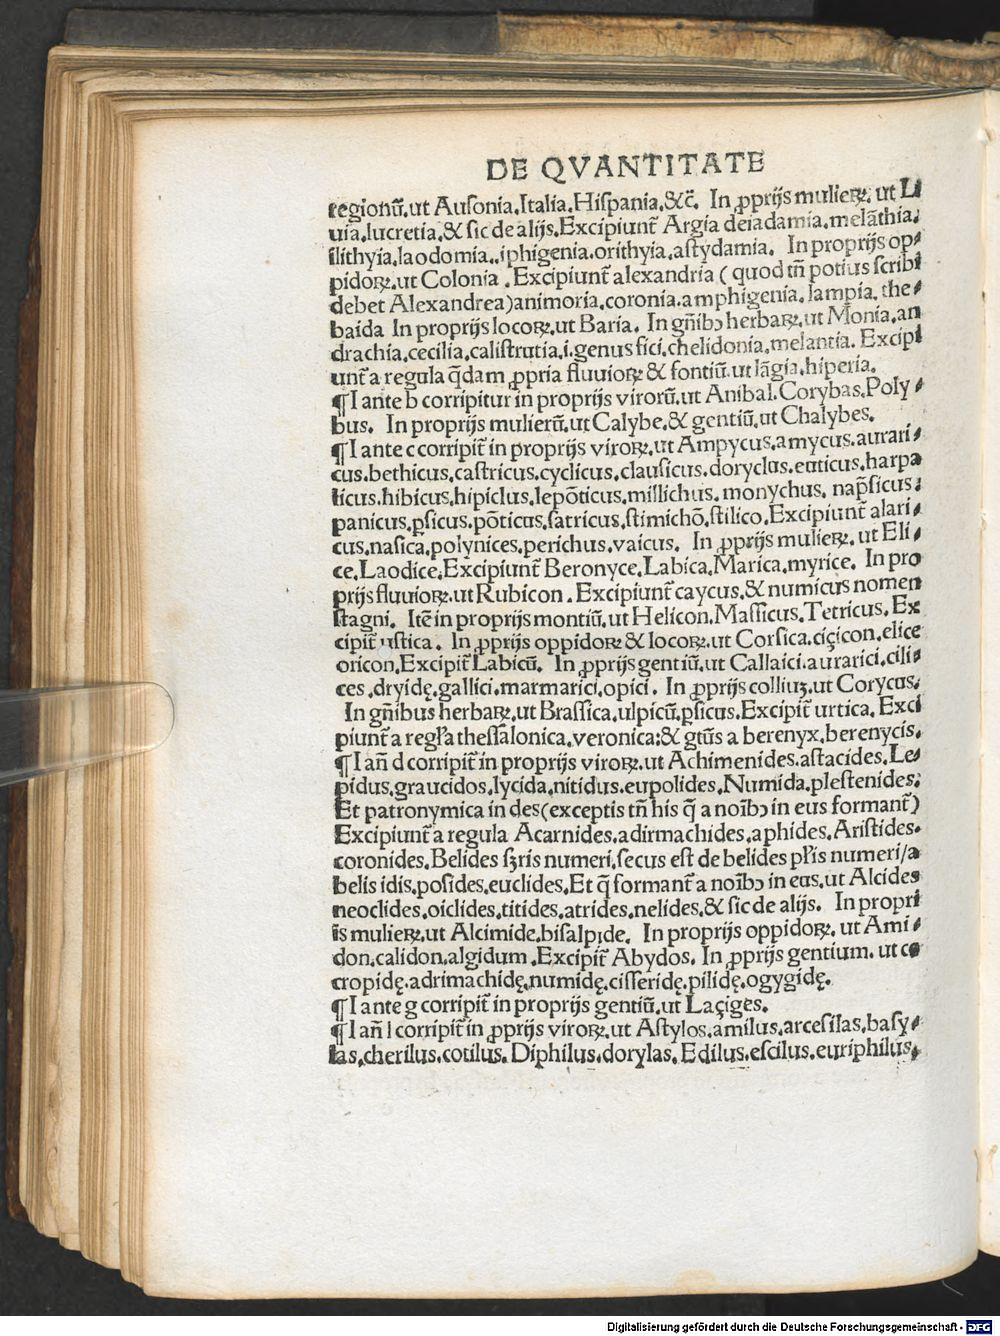 DE QVANTITATE
regionũ.ut Ausonia.Italia.Hispania.&c̃. In ꝓprijs mulieꝝ, ut Li
uia.lucretia.& sic de alijs.Excipiunt̃ Argia deiadamia.melãthia.
ilithyia.laodomia..iphigenia.orithyia.astydamia. In proprijs op⸗
pidoꝝ.ut Colonia . Excipiunt̃ alexandria ( quod tñ potius scribi
debet Alexandrea)animoria.coronia.amphigenia.lampia. the⸗
baida In proprijs locoꝝ.ut Baria. In gñibꝰ herbaꝝ.ut Monia.an
drachia.cecilia.calistrutia.i.genus fici.chelidonia.melantia. Excipi
unt̃ a regula q̃dam ꝓpria fluuioꝝ & fontiũ.ut lãgia.hiperia.
¶I ante b corripitur in proprijs virorũ.ut Anibal.Corybas.Poly⸗
bus. In proprijs mulierũ.ut Calybe.& gentiũ.ut Chalybes.
¶I ante c corripit̃ in proprijs viroꝝ.ut Ampycus.amycus.aurari⸗
cus.bethicus.castricus.cyclicus.clausicus.doryclus.euticus.harpa
licus.hibicus.hipiclus.lepõticus.millichus.monychus. nap̃sicus.
panicus.ꝑsicus.põticus.satricus.stimichõ.stilico.Excipiunt̃ alari⸗
cus.nasica.polynices.perichus.vaicus. In ꝓprijs mulieꝝ. ut Eli⸗
ce.Laodice.Excipiunt̃ Beronyce.Labica.Marica.myrice. In pro
prijs fluuioꝝ.ut Rubicon . Excipiunt̃ caycus.& numicus nomen
stagni. Itẽ in proprijs montiũ.ut Helicon.Massicus.Tetricus. Ex
cipit̃ ustica. In ꝓprijs oppidoꝝ & locoꝝ.ut Corsica.ciçicon.elice
oricon.Excipit̃ Labicũ. In ꝓprijs gentiũ.ut Callaici.aurarici.cili⸗
ces.dryidę.gallici.marmarici.opici. In ꝓprijs colliuꝫ.ut Corycus.
In gñibus herbaꝝ.ut Brassica.ulpicũ.ꝑsicus.Excipit̃ urtica. Exci
piunt̃ a regl̃a thessalonica.veronica:& gtũs a berenyx.berenycis.
¶I añ d corripit̃ in proprijs viroꝝ.ut Achimenides.astacides.Le⸗
pidus.graucidos.lycida.nitidus.eupolides.Numida.plestenides.
Et patronymica in des(exceptis tñ his q̃ a noĩbꝰ in eus formant̃)
Excipiunt̃ a regula Acarnides.adirmachides.aphides.Aristides.
coronides.Belides sꝫris numeri.secus est de belides pl̃is numeri/a
belis idis.posides.euclides.Et q̃ formant̃ a noĩbꝰ in eus.ut Alcides
neoclides.oiclides.titides.atrides.nelides.& sic de alijs. In propri
is mulieꝝ.ut Alcimide.bisalpide. In proprijs oppidoꝝ. ut Ami⸗
don.calidon.algidum .Excipit̃ Abydos. In ꝓprijs gentium. ut ce
cropidę.adrimachidę.numidę.cisseridę.pilidę.ogygidę.
¶I ante g corripit̃ in proprijs gentiũ.ut Laçiges.
¶I añ l corripit̃ in ꝓprijs viroꝝ.ut Astylos.amilus.arcesilas.basy⸗
las.cherilus.cotilus. Diphilus.dorylas. Edilus.escilus.euriphilus.
Digitalisierung gefördert durch die Deutsche Forschungsgemeinschaft - DFG